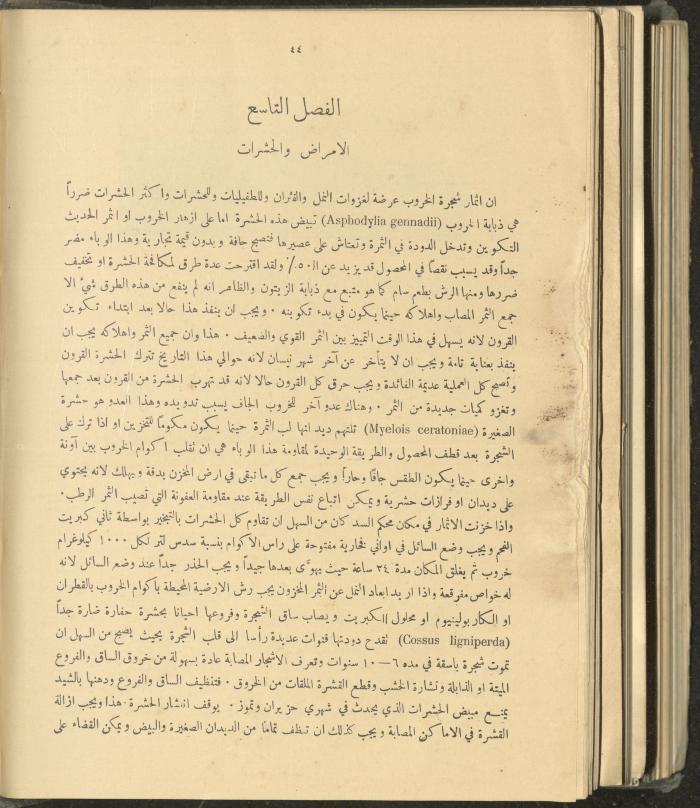 ٤٤
الفصل التاسع
الامراض والحشرات
ان اثمار شجرة الخروب عرضة لغزوات النمل والفئران وللطفيليات وللحشرات واكثر الحشرات ضرراً
هي ذبابة الخروب (Asphodylia gennadii) تبيض هذه الحشرة اما على ازهار الخروب او اثمر الحديث
التكوين وتدخل الدودة في الثمرة وتعتاش على عصيرها فتصبح جافة وبدون قيمة تجارية وهذا الوباء مضر
جداً وقد يسبب نقصاً في المحصول قد يزيد عن الـ٥٠٪ ولقد اقترحت عدة طرق لمكافحة الحشرة او تخفيف
ضررها ومنها الرش بطعم سام كما هو متبع مع ذبابة الزيتون والظاهر انه لم ينفع من هذه الطرق شيء الا
جمع الثمر المصاب واهلاكه حينما يكون في بدء تكوينه ٠ ويجب ان ينفذ هذا حالا بعد ابتداء تكوين
القرون لانه يسهل في هذا الوقت التمييز بين الثمر القوي والضعيف ٠ هذا وان جميع الثمر واهلاكه يجب ان
ينفذ بعناية تامة ويجب ان لا يتأخر عن آخر شهر نيسان لانه حوالي هذا التاريخ تترك الحشرة القرون
وتصبح كل العملية عديمة الفائدة ويجب حرق كل القرون حالا لانه قد تهرب الحشرة من القرون بعد جمعها
وتغزو كميات جديدة من الثمر ٠ وهناك عدو آخر للخروب الجاف يسبب تدويده وهذا العدو هو حشرة
الصغيرة (Myelois ceratoniae) تلتهم ديدانها لب الثمرة حينما يكون مكوماً للتخزين او اذا ترك على
الشجرة بعد قطف المحصول والطريقة الوحيدة لمقاومة هذا الوباء هي ان نقلب اكوام الخروب بين آونة
واخرى حينما يكون الطقس جافاً وحاراً ويجب جمع كل ما تبقى في ارض المخزن بدقة ويهلك لانه يحتوي
على ديدان او فرازات حشرية ويمكن اتباع نفس الطريقة عند مقاومة العفونة التي تصيب الثمر الرطب٠
واذا خزنت الاثمار في مكان محكم السد كان من السهل ان تقاوم كل الحشرات بالتبخير بواسطة ثاني كبريت
الفحم ويجب وضع السائل في اواني فخارية مفتوحة على راس الاكوام بنسبة سدس لتر لكل ١٠٠٠ كيلوغرام
خروب ثم يغلق المكان مدة ٢٤ ساعة حيث يهوّى بعدها جيداً ويجب الحذر جداً عند وضع السائل لانه
له خواص مفرقعة واذا اريد ابعاد النمل عن الثمر المخزون يجب رش الارضية المحيطة باكوام الخروب بالقطران
او الكاربولينيوم او محلول الكبريت ويصاب ساق الشجرة وفروعها احيانا بحشرة حفارة ضارة جداً
(Cossus ligniperda) تقدح دودتها قنوات عديدة رأسا الى قلب الشجرة بحيث يصبح من السهل ان
تموت شجرة باسقة في مده ٦–١٠ سنوات وتعرف الاشجار المصابة عادة بسهولة من خروق الساق والفروع
الميتة او الذابلة ونشارة الخشب وقطع القشرة الملقات من الخروق ٠ فتنظيف الساق والفروع ودهنها بالشيد
يمنع مبيض الحشرات الذي يحدث في شهري حزيران وتموز ٠ يوقف انتشار الحشرة ٠ هذا ويجب ازالة
القشرة في الاماكن المصابة ويجب كذلك ان تنظف تماماً من الديدان الصغيرة والبيض ويمكن القضاء على